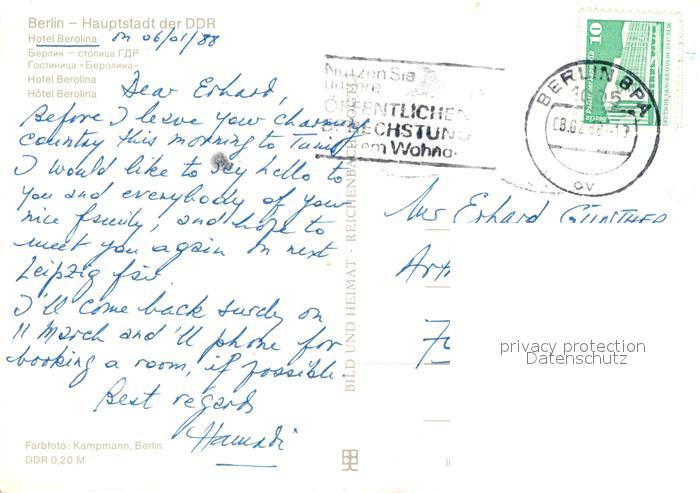 Berlin – Hauptstadt der DDR
Hotel Berolina on 06/01/88
Берлин – столица ГДР
Гостиница «Беролина»
Hotel Berolina
Hôtel Berolina
Dear Erhard,
Before I leave your charming
country this morning to Tunis
I would like to say hello to
you and everybody of your
nice family, and hope to
meet you again on next
Leipzig fair.
I'll come back surely on
11 March and 'll phone for
booking a room, if possible.
Best regards
Hamadi
Farbfoto: Kampmann, Berlin
DDR 0,20 M
BILD UND HEIMAT · REICHENBACH
Nutzen Sie
unsere
ÖFFENTLICHE
SPRECHSTUND
em Wohng
BERLIN BPA
ov
10
Berlin
DDR
Mr Erhard GÜNTHER
privacy protection
Datenschutz